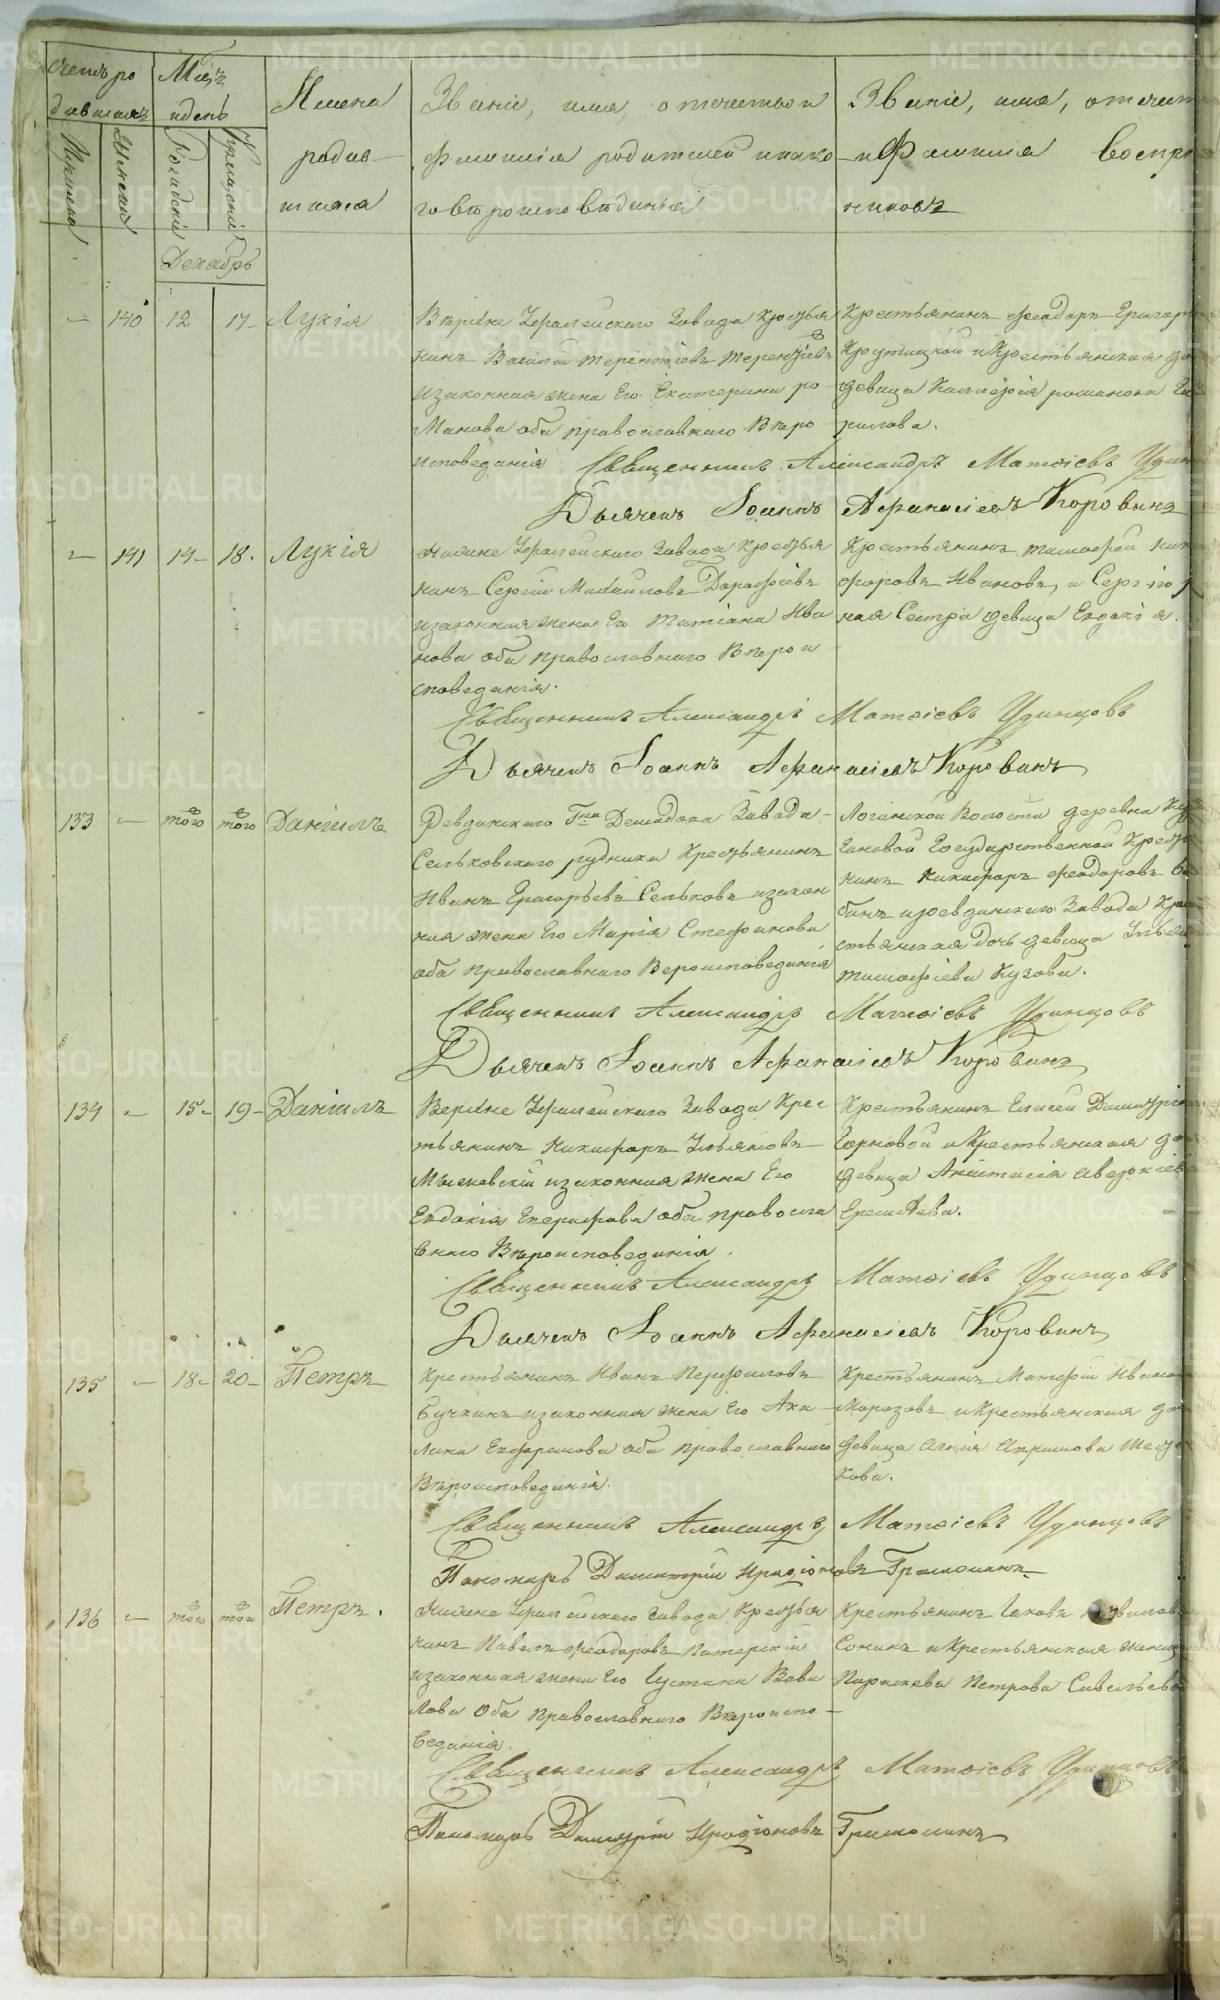 Счетъ ро
дившихся
Мѣсяцъ
и день
Мужеска
Женска
Рожденія
Крещенія
Имена
родив-
шихся
Званіе, имя, отчество и
фамилія родителей и како-
го вѣроисповѣданія
Званіе, имя, отчест
и фамилія воспрі
никовъ
Декабрь
140 12 17 Лукія
Верхне Уфалейскаго Завода Крестья
нинъ Василій Терентіевъ Терентіевъ
и законная жена Его Екатерина Ро-
манова оба православнаго Вѣро
исповеданія
Крестьянинъ Феодоръ Григорь
Крутицкой и Крестьянская до
девица
рилова.
Священникъ Александръ Матѳіевъ Удин
Дьячекъ Іоаннъ Афанасіевъ Коровинъ
141 14 18. Лукія
Нижне Уфалейскаго Завода Крестья
нинъ Сергій Михайловъ Дорофіевъ
и законная жена Его Татіана Ива
нова оба православнаго Вѣрои
споведанія.
Крестьянинъ Тимофей Ник
форовъ Ивановъ, и Сергію
ная Сестра девица Евдокія.
Священникъ Александръ Матѳіевъ Удинцовъ
Дьячекъ Іоаннъ Афанасіевъ Коровинъ
133 того того Даніилъ
Ревдинскаго Гна Демидова Завода
Сельковскаго рудника Крестьянинъ
Иванъ Григорьевъ Сельковъ и закон
ная жена Его Марія Стефанова
оба православнаго Вероисповеданія
Логинской Волости деревни
Государственной Крестья
нинъ Никифоръ Феодоровъ
и ревдинскаго Завода Кре
стьянская Дочь девица Улья
Тимофіева Кузова.
Священникъ Александръ Матѳіевъ Удинцовъ
Дьячекъ Іоаннъ Афанасіевъ Коровинъ
134 15 19 Даніилъ
Верхне Уфалейскаго Завода Крес
тьянинъ Никифоръ Ульяновъ
и законная жена Его
Евдокія Евграфова оба правосла
внаго Вѣроисповеданія.
Крестьянинъ Елисей Димитрі
Горновой и Крестьянская до
девица Анастасія Аверкіев
Священникъ Александръ Матѳіевъ Удинцовъ
Дьячекъ Іоаннъ Афанасіевъ Коровинъ
135 18 20 Петръ
Крестьянинъ Иванъ Перфиловъ
Бучкинъ и законная жена Его Аки-
лина Евфремова оба православнаго
Вѣроисповеданія.
Крестьянинъ Матфій Ивано
Морозовъ и Крестьянская до
девица Агнія
кова.
Священникъ Александръ Матѳіевъ Удинцовъ
Пономарь Димитрій Иродіоновъ Грамолинъ
136 того того Петръ.
Нижне Уфалейскаго Завода Крестья
нинъ Павелъ Феодоровъ Питерскій
и законная жена Его Іустина Вави
лова Оба православнаго Вѣроиспо-
веданія.
Крестьянинъ Іаковъ
Сонинъ и Крестьянская жена
Параскева Петрова Савельева
Священникъ Александръ Матѳіевъ Удинцовъ
Пономарь Димитрій Иродіоновъ Грамолинъ
METRIKI.GASO-URAL.RU